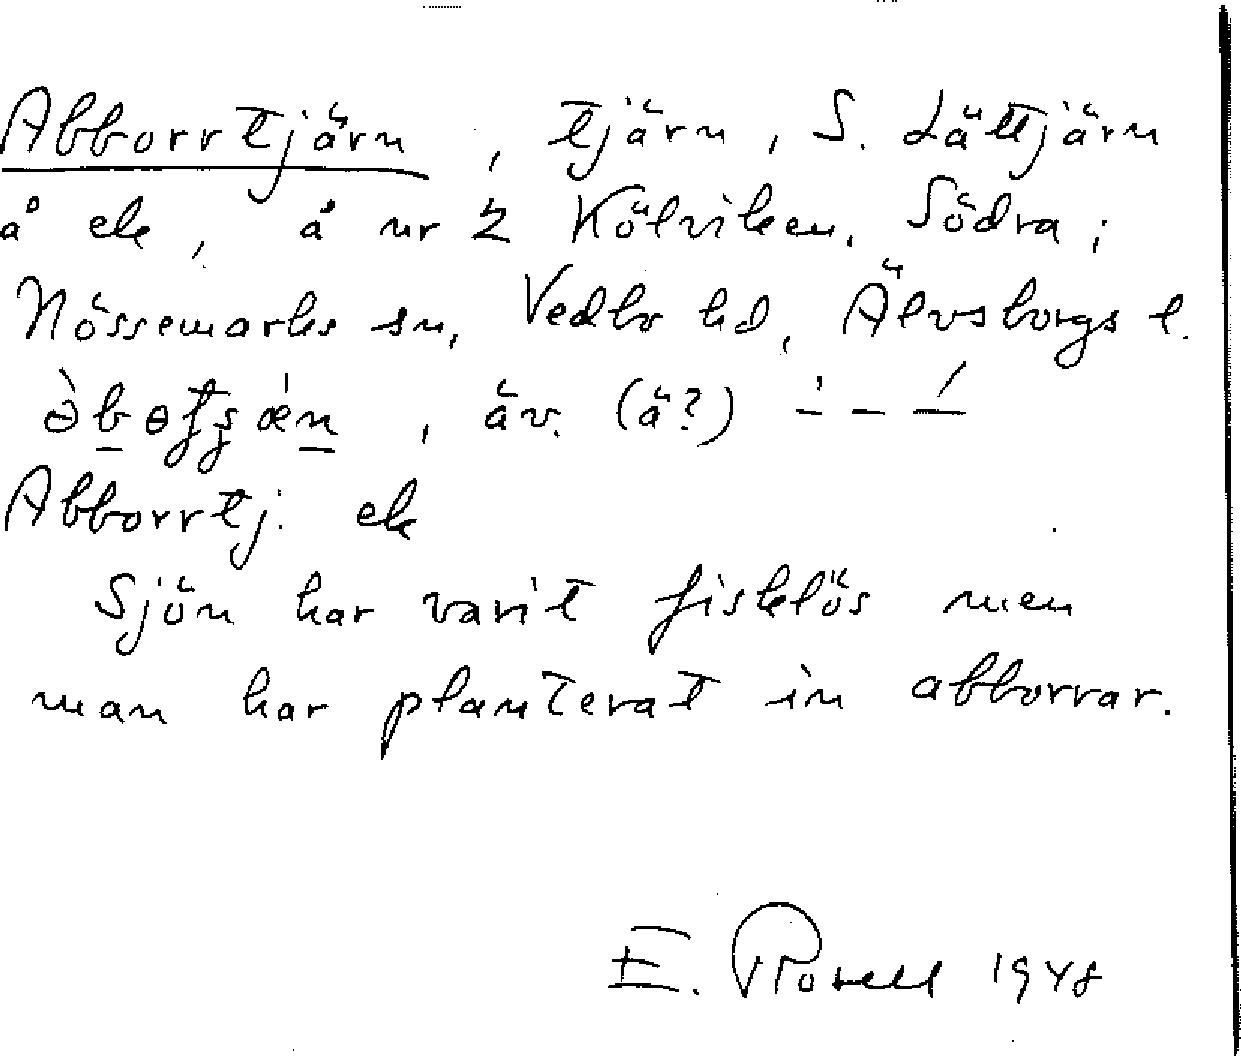 Abborrtjärn, tjärn, S. Lättjärn
å ek, å nr 2 Kölviken, Södra;
Nössemarks sn, Vedbo hd, Älvsborgs l.
, äv. (ä?)
Abborrtj. ek
Sjön har varit fisklös men
man har planterat in abborrar.
E. 1948